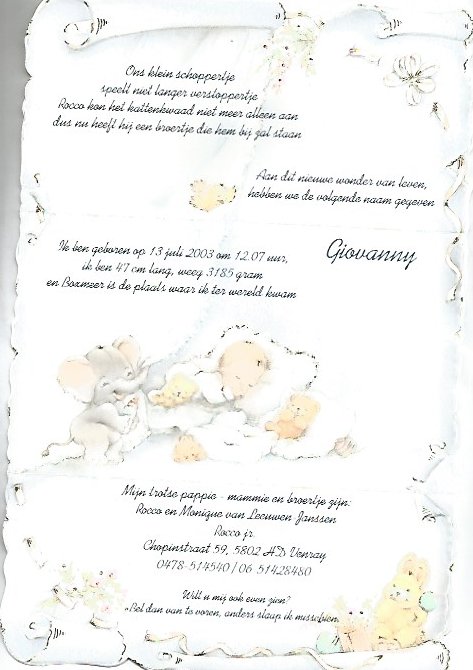 Ons klein schoppertje
speelt niet langer verstoppertje
Rocco kon het kattenkwaad niet meer alleen aan
dus nu heeft hij een broertje die hem bij zal staan
Aan dit nieuwe wonder van leven,
hebben we de volgende naam gegeven
Giovanny
Ik ben geboren op 13 juli 2003 om 12.07 uur,
ik ben 47 cm lang, weeg 3185 gram
en Boxmeer is de plaats waar ik ter wereld kwam
Mijn trotse pappie - mammie en broertje zijn:
Rocco en Monique van Leeuwen Janssen
Rocco jr.
Chopinstraat 59, 5802 HD Venray
0478-514540 / 06 51428480
Wilt u mij ook even zien?
Bel dan van te voren, anders slaap ik misschien.